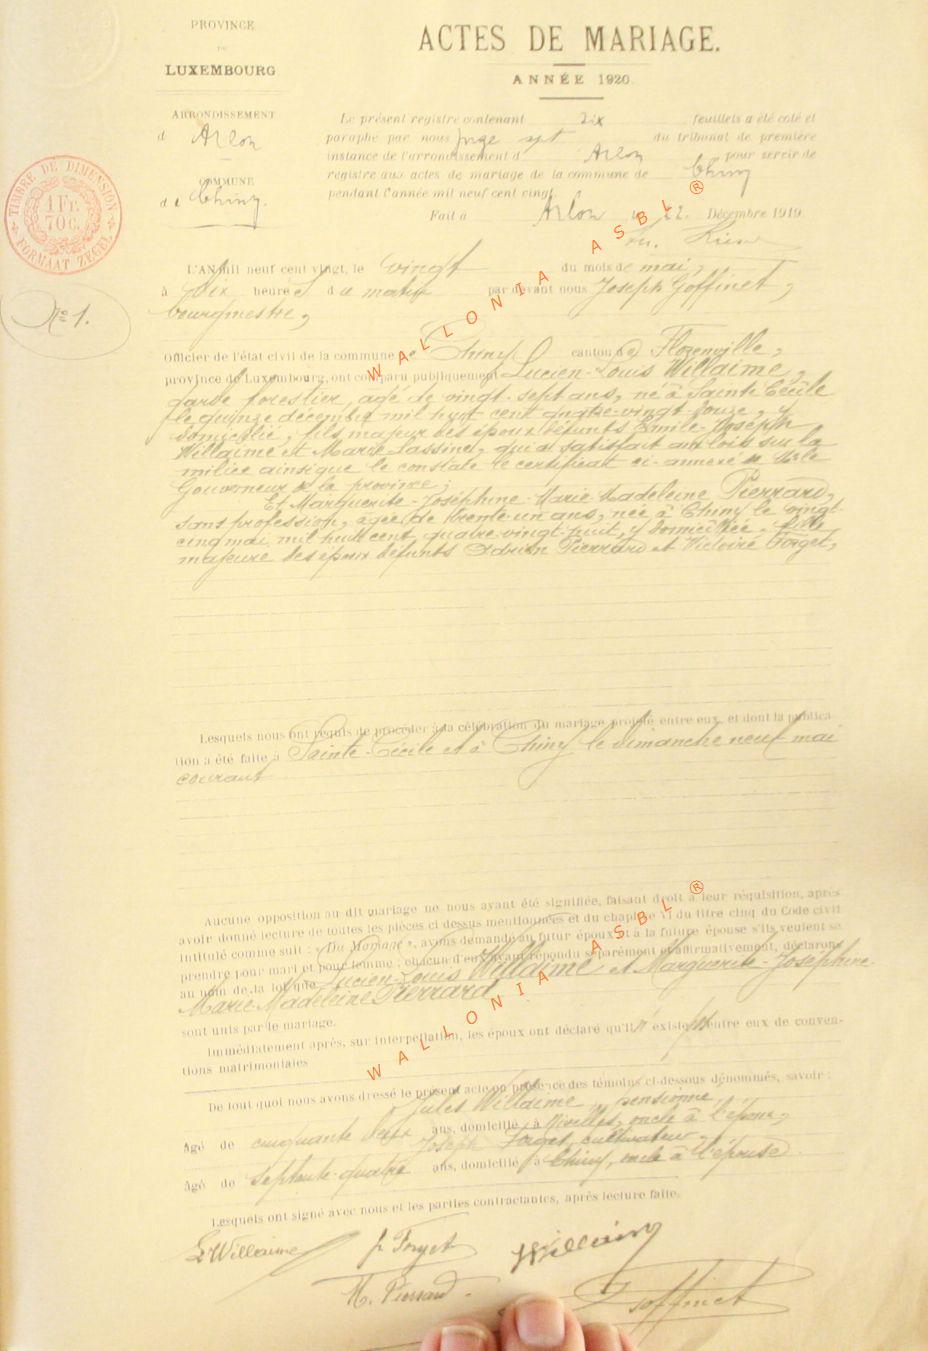 PROVINCE
DE
LUXEMBOURG
ARRONDISSEMENT
d Arlon
COMMUNE
de Chiny.
TIMBRE DE DIMENSION
1 Fr.
70 C.
FORMAAT ZEGEL
No 1.
ACTES DE MARIAGE.
ANNÉE 1920.
Le présent registre contenant dix feuillets a été coté et
paraphé par nous juge du tribunal de première
instance de l'arrondissement d Arlon pour servir de
registre aux actes de mariage de la commune de Chiny
pendant l'année mil neuf cent vingt.
Fait à Arlon le 22 Décembre 1919.
L'AN mil neuf cent vingt, le vingt du mois de mai,
à dix heures du matin par devant nous Joseph Goffinet,
bourgmestre,
Officier de l'état civil de la commune de Chiny canton de Florenville,
province de Luxembourg, ont comparu publiquement Lucien-Louis Willaime,
garde forestier, âgé de vingt-sept ans, né à Sainte Cécile
le quinze décembre mil huit cent quatre-vingt-douze, y
domicilié, fils majeur des époux défunts Emile-Joseph
Willaime et Marie Lassine, qui a satisfait aux lois sur la
milice ainsi que le constate le certificat ci-annexé de Mr le
Gouverneur de la province;
Et Marguerite-Joséphine-Marie-Madeleine Pierrard,
sans profession, âgée de trente-un ans, née à Chiny le vingt-
cinq mai mil huit cent quatre-vingt-huit, y domiciliée, fille
majeure des époux défunts Adrien Pierrard et Victoire Forget,
Lesquels nous ont requis de procéder à la célébration du mariage projeté entre eux, et dont la publica-
tion a été faite à Sainte-Cécile et à Chiny le dimanche neuf mai
courant
Aucune opposition au dit mariage ne nous ayant été signifiée, faisant droit à leur réquisition, après
avoir donné lecture de toutes les pièces ci dessus mentionnées et du chapitre VI du titre cinq du Code civil
intitulé comme suit : « Du Mariage », avons demandé au futur époux et à la future épouse s'ils veulent se
prendre pour mari et pour femme ; chacun d'eux ayant répondu séparément et affirmativement, déclarons
au nom de la loi que Lucien-Louis Willaime et Marguerite-Joséphine-
Marie-Madeleine Pierrard
sont unis par le mariage.
Immédiatement après, sur interpellation, les époux ont déclaré qu'il n'existe pas entre eux de conven-
tions matrimoniales
De tout quoi nous avons dressé le présent acte en présence des témoins ci-dessous dénommés, savoir :
Jules Willaime, pensionné,
Agé de cinquante deux ans, domicilié à Nivelles, oncle à l'époux,
Joseph Forget, cultivateur,
âgé de septante-quatre ans, domicilié à Chiny, oncle à l'épouse.
Lesquels ont signé avec nous et les parties contractantes, après lecture faite.
L Willaime
J. Forget
Willaime
M. Pierrard.
Goffinet
WALLONIA ASBL ®
WALLONIA ASBL ®